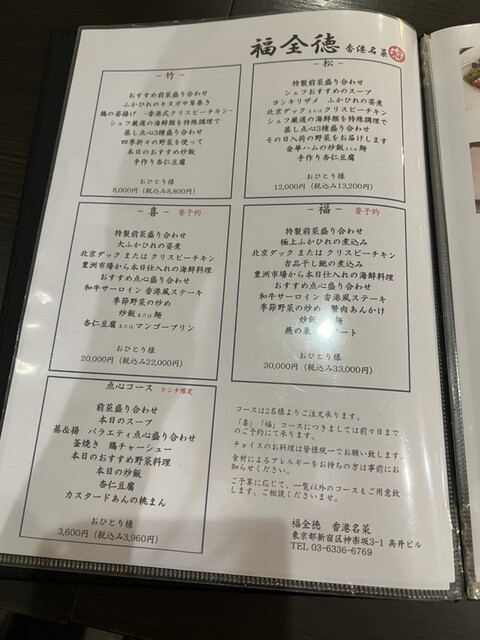 福全徳 香港名菜
- 竹 -
おすすめ前菜盛り合わせ
ふかひれのキヌガサ茸巻き
鶏の姿揚げ －香港式クリスピーチキン－
シェフ厳選の海鮮類を特殊調理で
蒸し点心3種盛り合わせ
四季折々の野菜を使って
本日のおすすめ炒飯
手作り杏仁豆腐
おひとり様
8,000円（税込み8,800円）
- 松 -
特製前菜盛り合わせ
シェフおすすめのスープ
ヨシキリザメ ふかひれの姿煮
北京ダック または クリスピーチキン
シェフ厳選の海鮮類を特殊調理で
蒸し点心3種盛り合わせ
その日入荷の野菜をお届けします
金華ハムの炒飯 または 麺
手作り杏仁豆腐
おひとり様
12,000円（税込み13,200円）
- 喜 - 要予約
特製前菜盛り合わせ
大ふかひれの姿煮
北京ダック または クリスピーチキン
豊洲市場から本日仕入れの海鮮料理
おすすめ点心盛り合わせ
和牛サーロイン 香港風ステーキ
季節野菜の炒め
炒飯 または 麺
杏仁豆腐 または マンゴープリン
おひとり様
20,000円（税込み22,000円）
- 福 - 要予約
特製前菜盛り合わせ
極上ふかひれの煮込み
北京ダック または クリスピーチキン
吉品干し鮑の煮込み
豊洲市場から本日仕入れの海鮮料理
おすすめ点心盛り合わせ
和牛サーロイン 香港風ステーキ
季節野菜の炒め 蟹肉あんかけ
炒飯 麺
燕の巣 ート
おひとり様
30,000円（税込み33,000円）
点心コース ランチ限定
前菜盛り合わせ
本日のスープ
蒸&揚 バラエティ点心盛り合わせ
釜焼き 鶏チャーシュー
本日のおすすめ野菜料理
本日の炒飯
杏仁豆腐
カスタードあんの桃まん
おひとり様
3,600円（税込み3,960円）
コースは2名様よりご注文承ります。
「喜」「福」コースにつきましては前々日までのご予約にて承ります。
チョイスのお料理は皆様統一でお願い致します。
食材によるアレルギーをお持ちの方は事前にお知らせください。
ご予算に応じて、一覧以外のコースもご用意致します。ご相談くださいませ。
福全徳 香港名菜
東京都新宿区神楽坂3-1 高井ビル
TEL 03-6336-6769